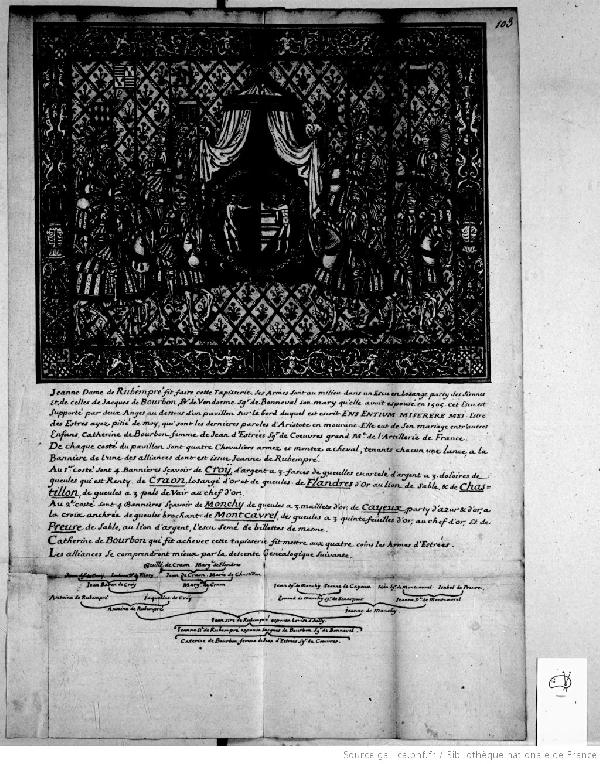 103
Jeanne Dame de Rubempré fit faire cette Tapisserie. Ses Armes sont au milieu dans un Escu en losange party des siennes
et de celles de Jacques de Bourbon, de Vendosme Sgr de Bonneval son mary qu'elle avoit espousé en 1505. Cet Escu est
Supporté par deux Anges au dessus d'un pavillon sur le bord duquel est escrit ENS ENTIUM MISERERE MEI. Estre
des Estres ayez pitié de moy, qui sont les dernieres paroles d'Aristote en mourant. Elle eut de son mariage entr'autres
Enfans Catherine de Bourbon femme de Jean d'Estrées Sgr de Coeuvres grand Me de l'Artillerie de France.
De chaque costé du pavillon sont quatre Chevaliers armez et montez acheval, tenants chacun une lance a la
Banniere de l'une des alliances dont est issue Jeanne de Rubempré.
Au 1er costé sont 4 Bannieres Scavoir de Croij, d'argent a 3 fasces de gueulles escartelé d'argent a 3 doloires de
gueules qui est Renty, de Craon, losangé d'or et de gueules, de Flandres d'or au lion de Sable, & de Chas-
tillon, de gueules a 3 pals de Vair au chef d'or.
Au 2e costé sont 4 Bannieres Scavoir de Monchy de gueules a 3 maillets d'or, de Cayeux, party d'azur & d'or, a
la croix anchrée de gueules brochant, de Montcavrel des gueules a 3 quintefeuilles d'or, au chef d'or. Et de
Preure de Sable, au lion d'argent, l'escu Semé de billettes de mesme.
Catherine de Bourbon qui fit achever cette tapisserie fit mettre aux quatre coins les Armes d'Estrées.
Les alliances Se comprendront mieux par la descente Genealogique Suivante.
de Craon Marg. de Flandres
Jean de Craon Marie de Chastillon Jean Sgr de Monchy Jeanne de Cayeux Isabel de Preure
Jean de Croy Marg. de Craon de Montcavrel
Antoine de Rubempré Jaqueline de Croy
Antoine de Rubempré Jeanne de Monchy
Jean sire de Rubempré
Jeanne de Rubempré espousa Jacques de Bourbon Sgr de Bonneval
Caterine de Bourbon femme de Jean d'Estrées Sgr de Coeuvres
Source gallica.bnf.fr / Bibliothèque nationale de France